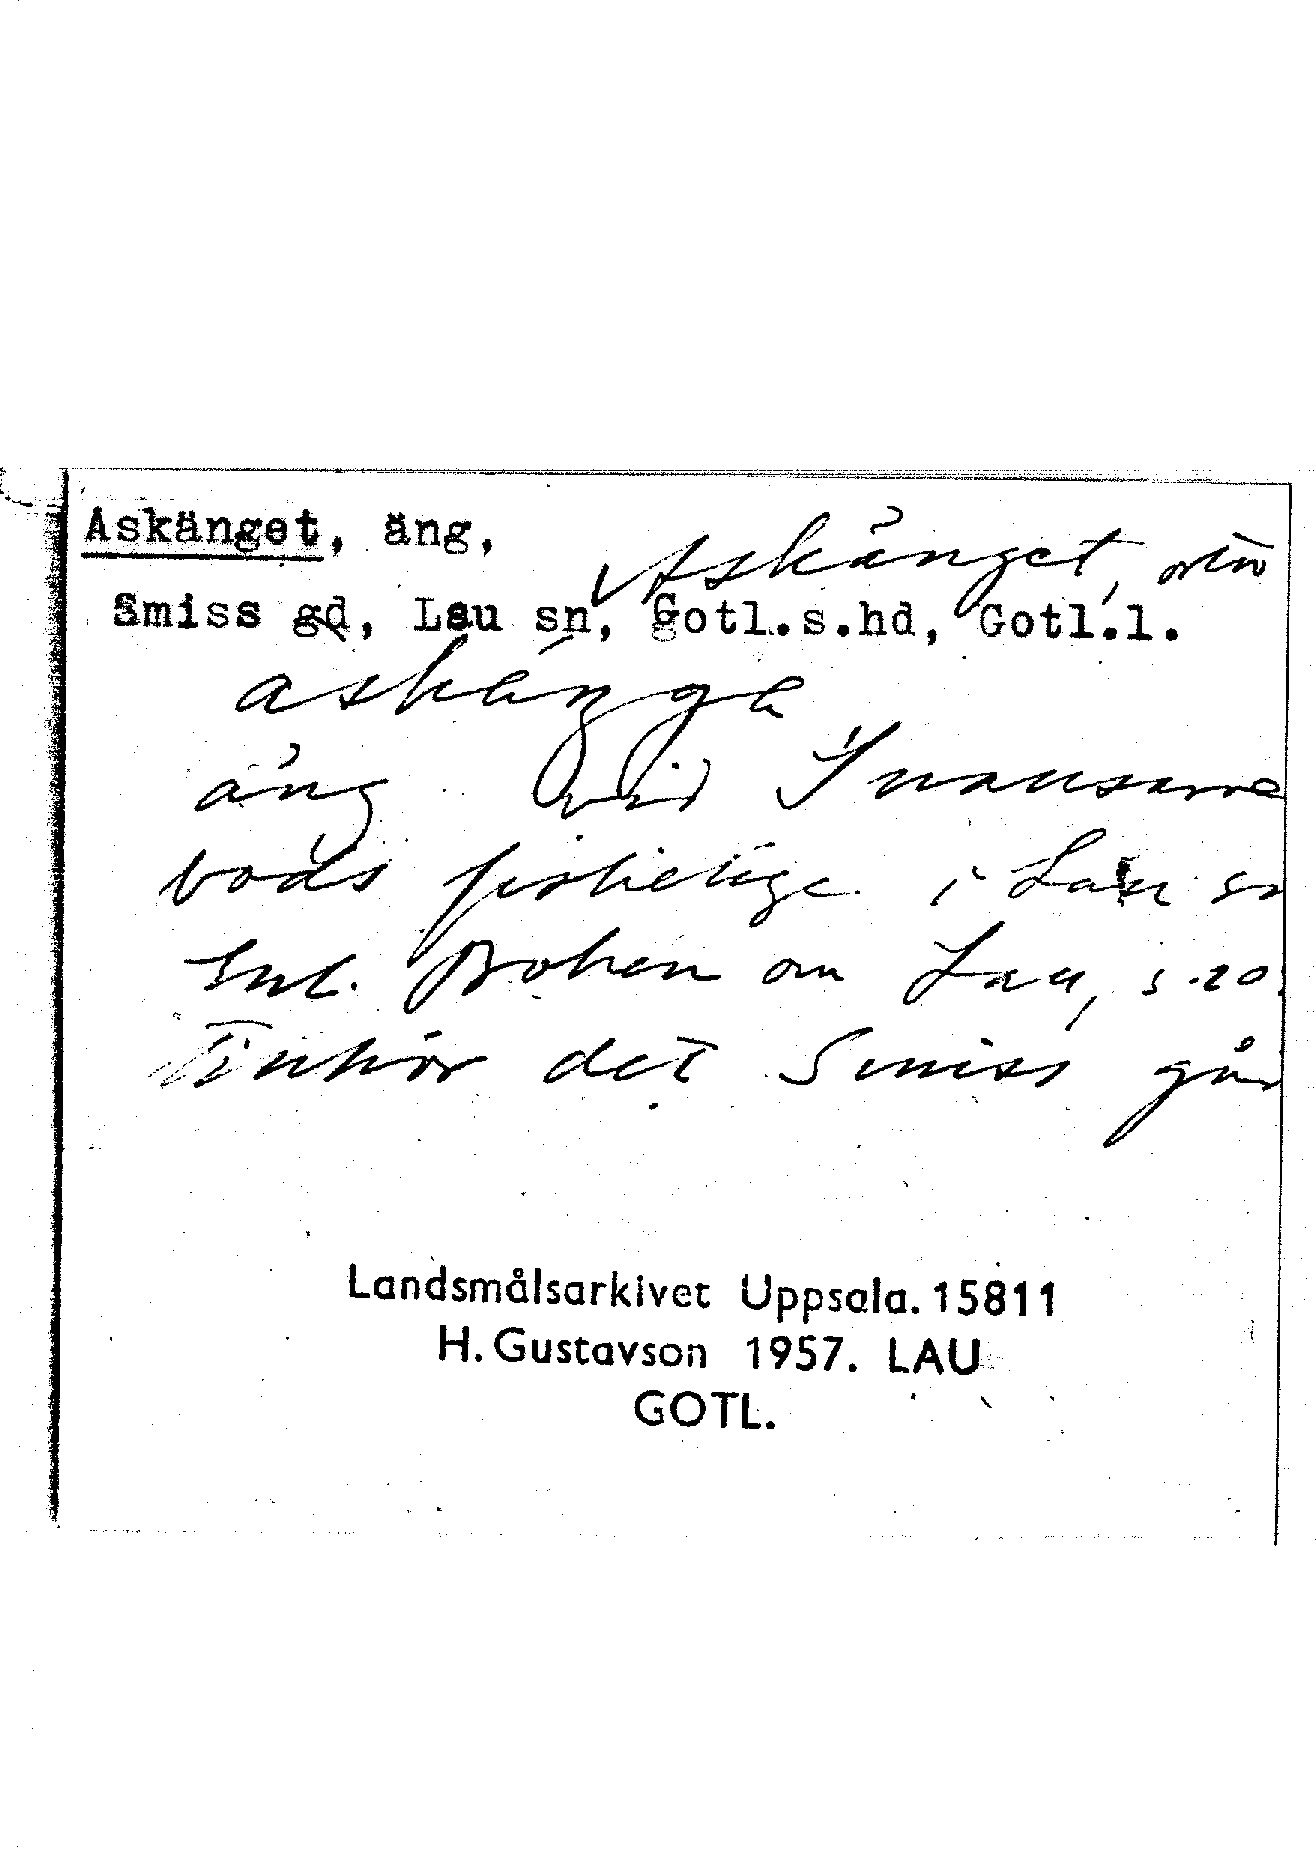 Askänget, äng,
Askänget,
Smiss gd, Lau sn, Gotl.s.hd, Gotl.l.
askänga
äng vid Snausarve
bods fiskeläge i Lau sn
Enl. Boken om Lau, s. 20
Tillhör det Smiss går
Landsmålsarkivet Uppsala. 15811
H. Gustavson 1957. LAU
GOTL.